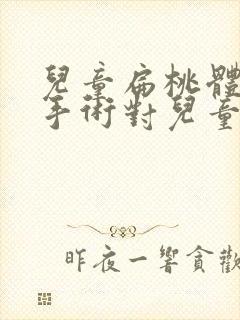 兒童扁桃體
手術對兒童
昨夜一響貪歡